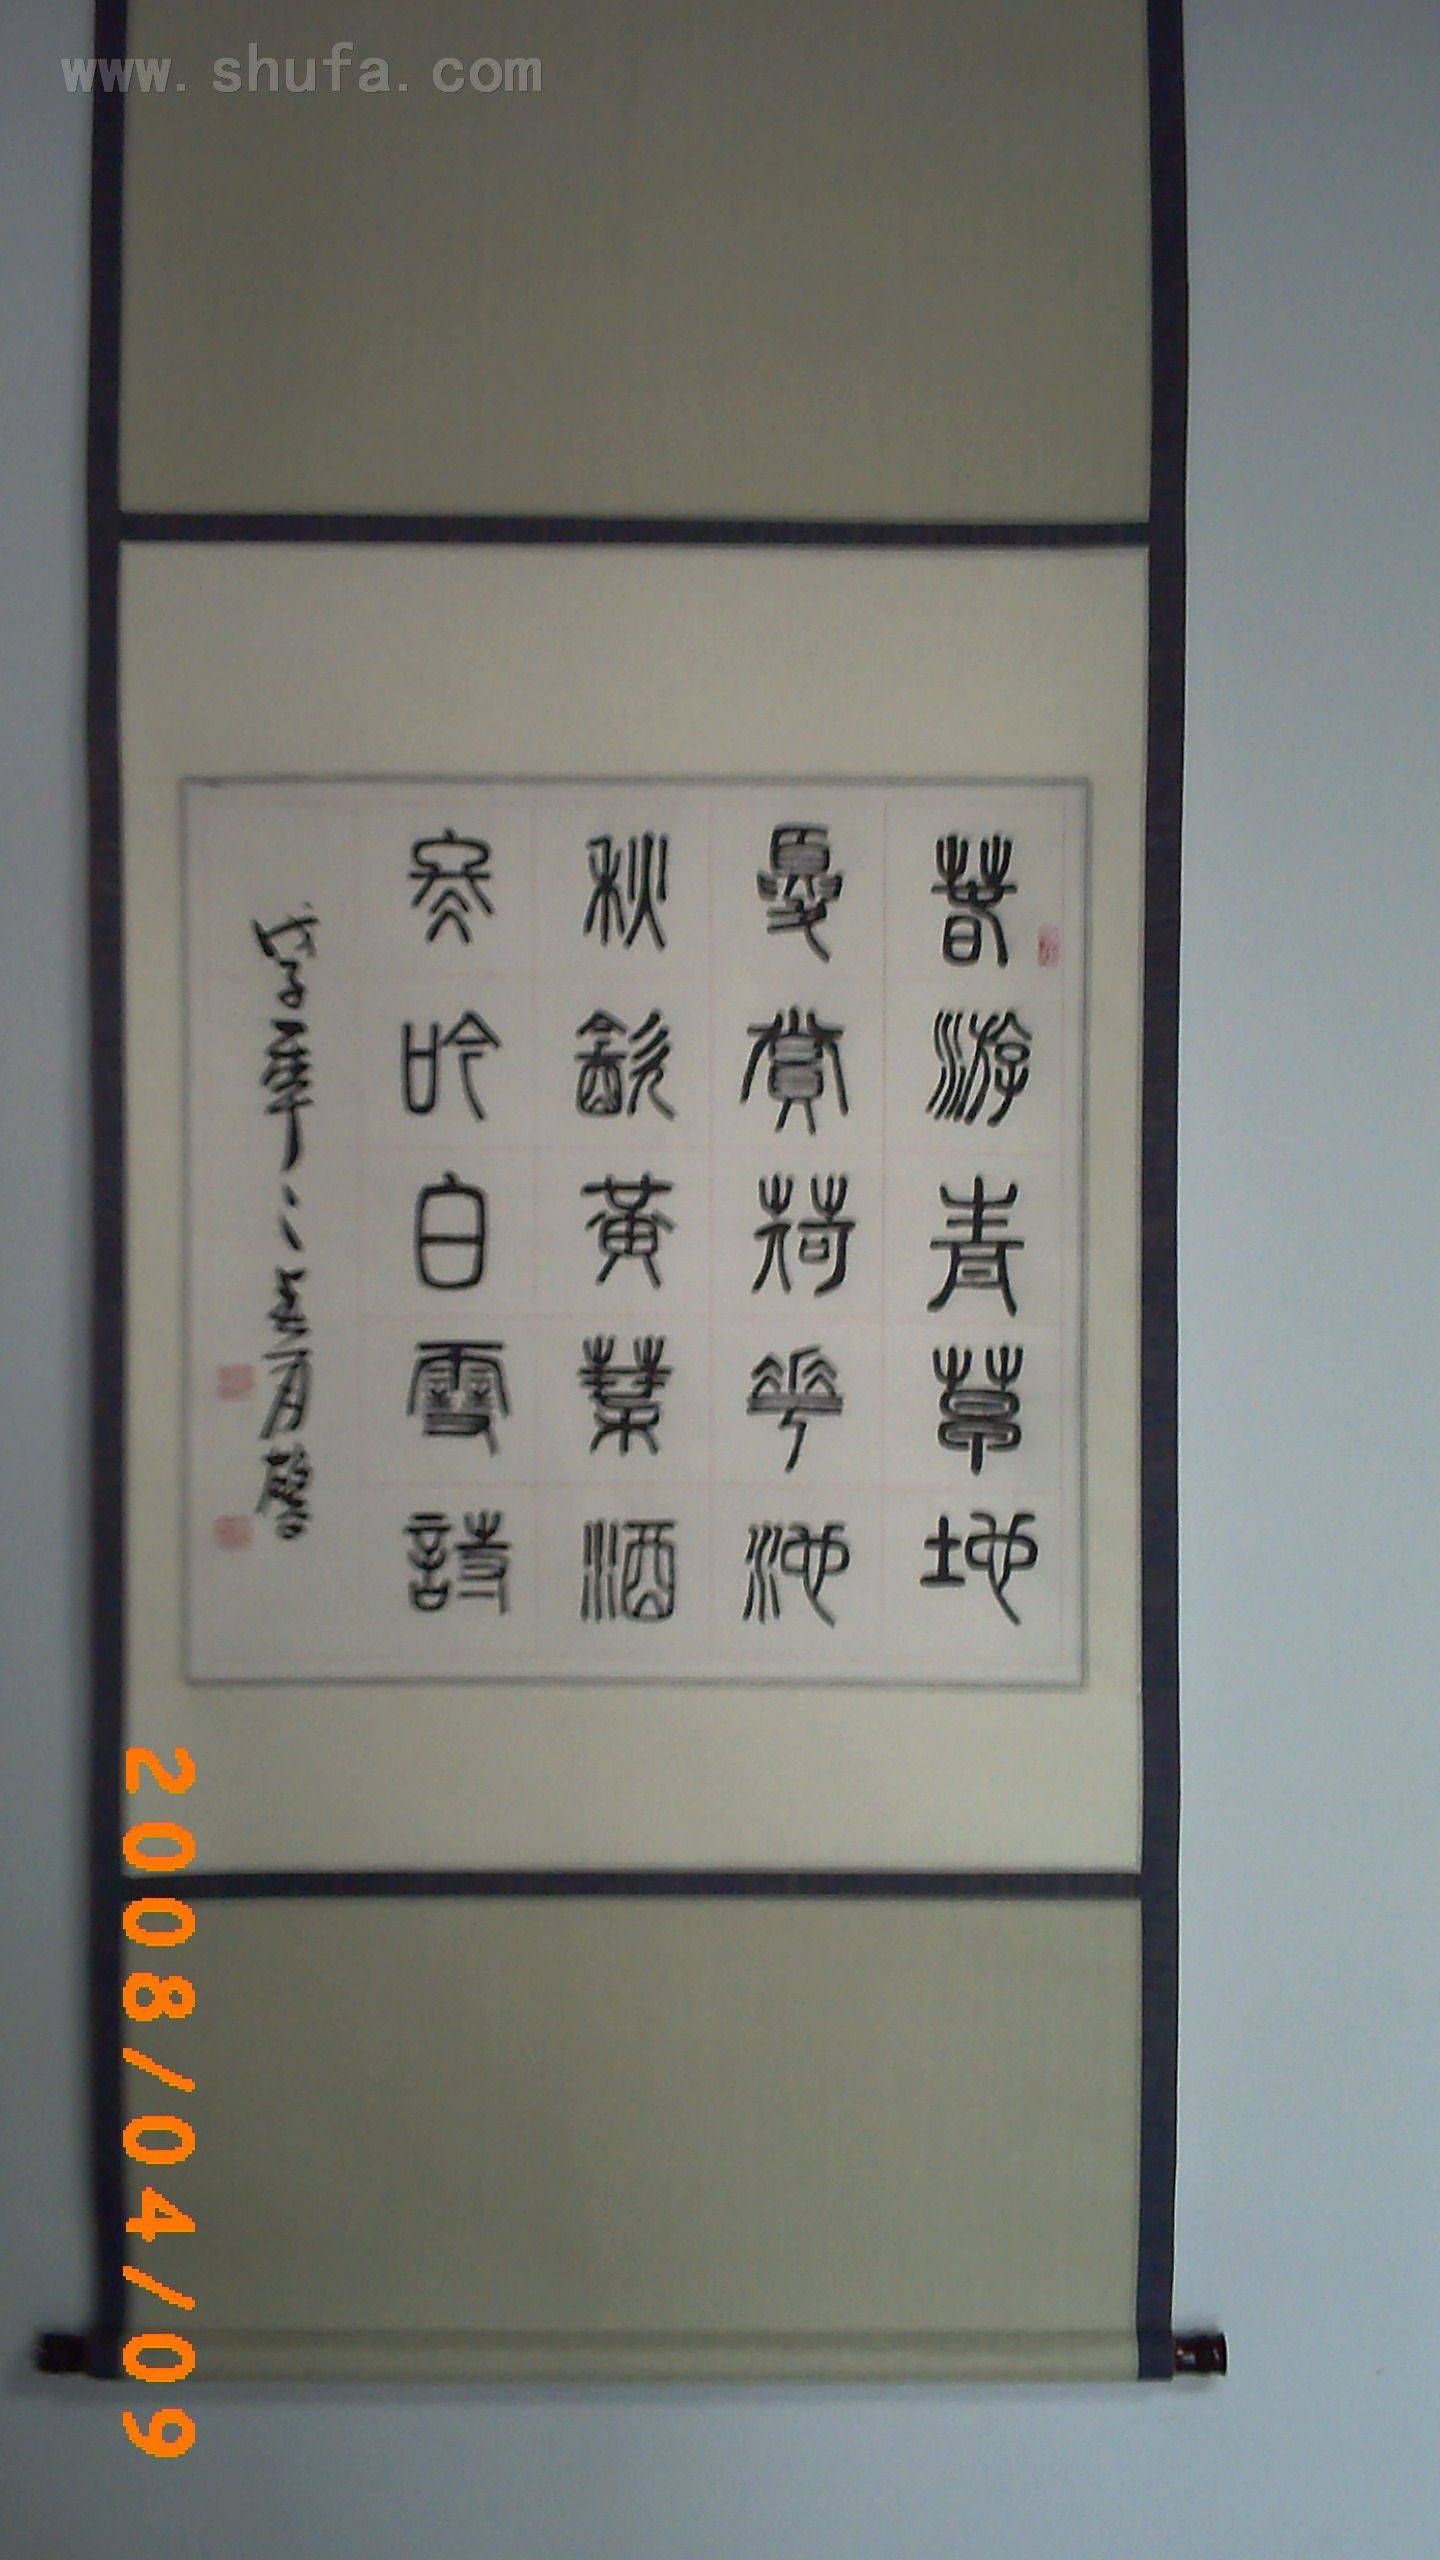 www.shufa.com
春游青草地
夏賞荷花池
秋飲黃葉酒
冬吟白雪詩
戊子年
2008/04/09